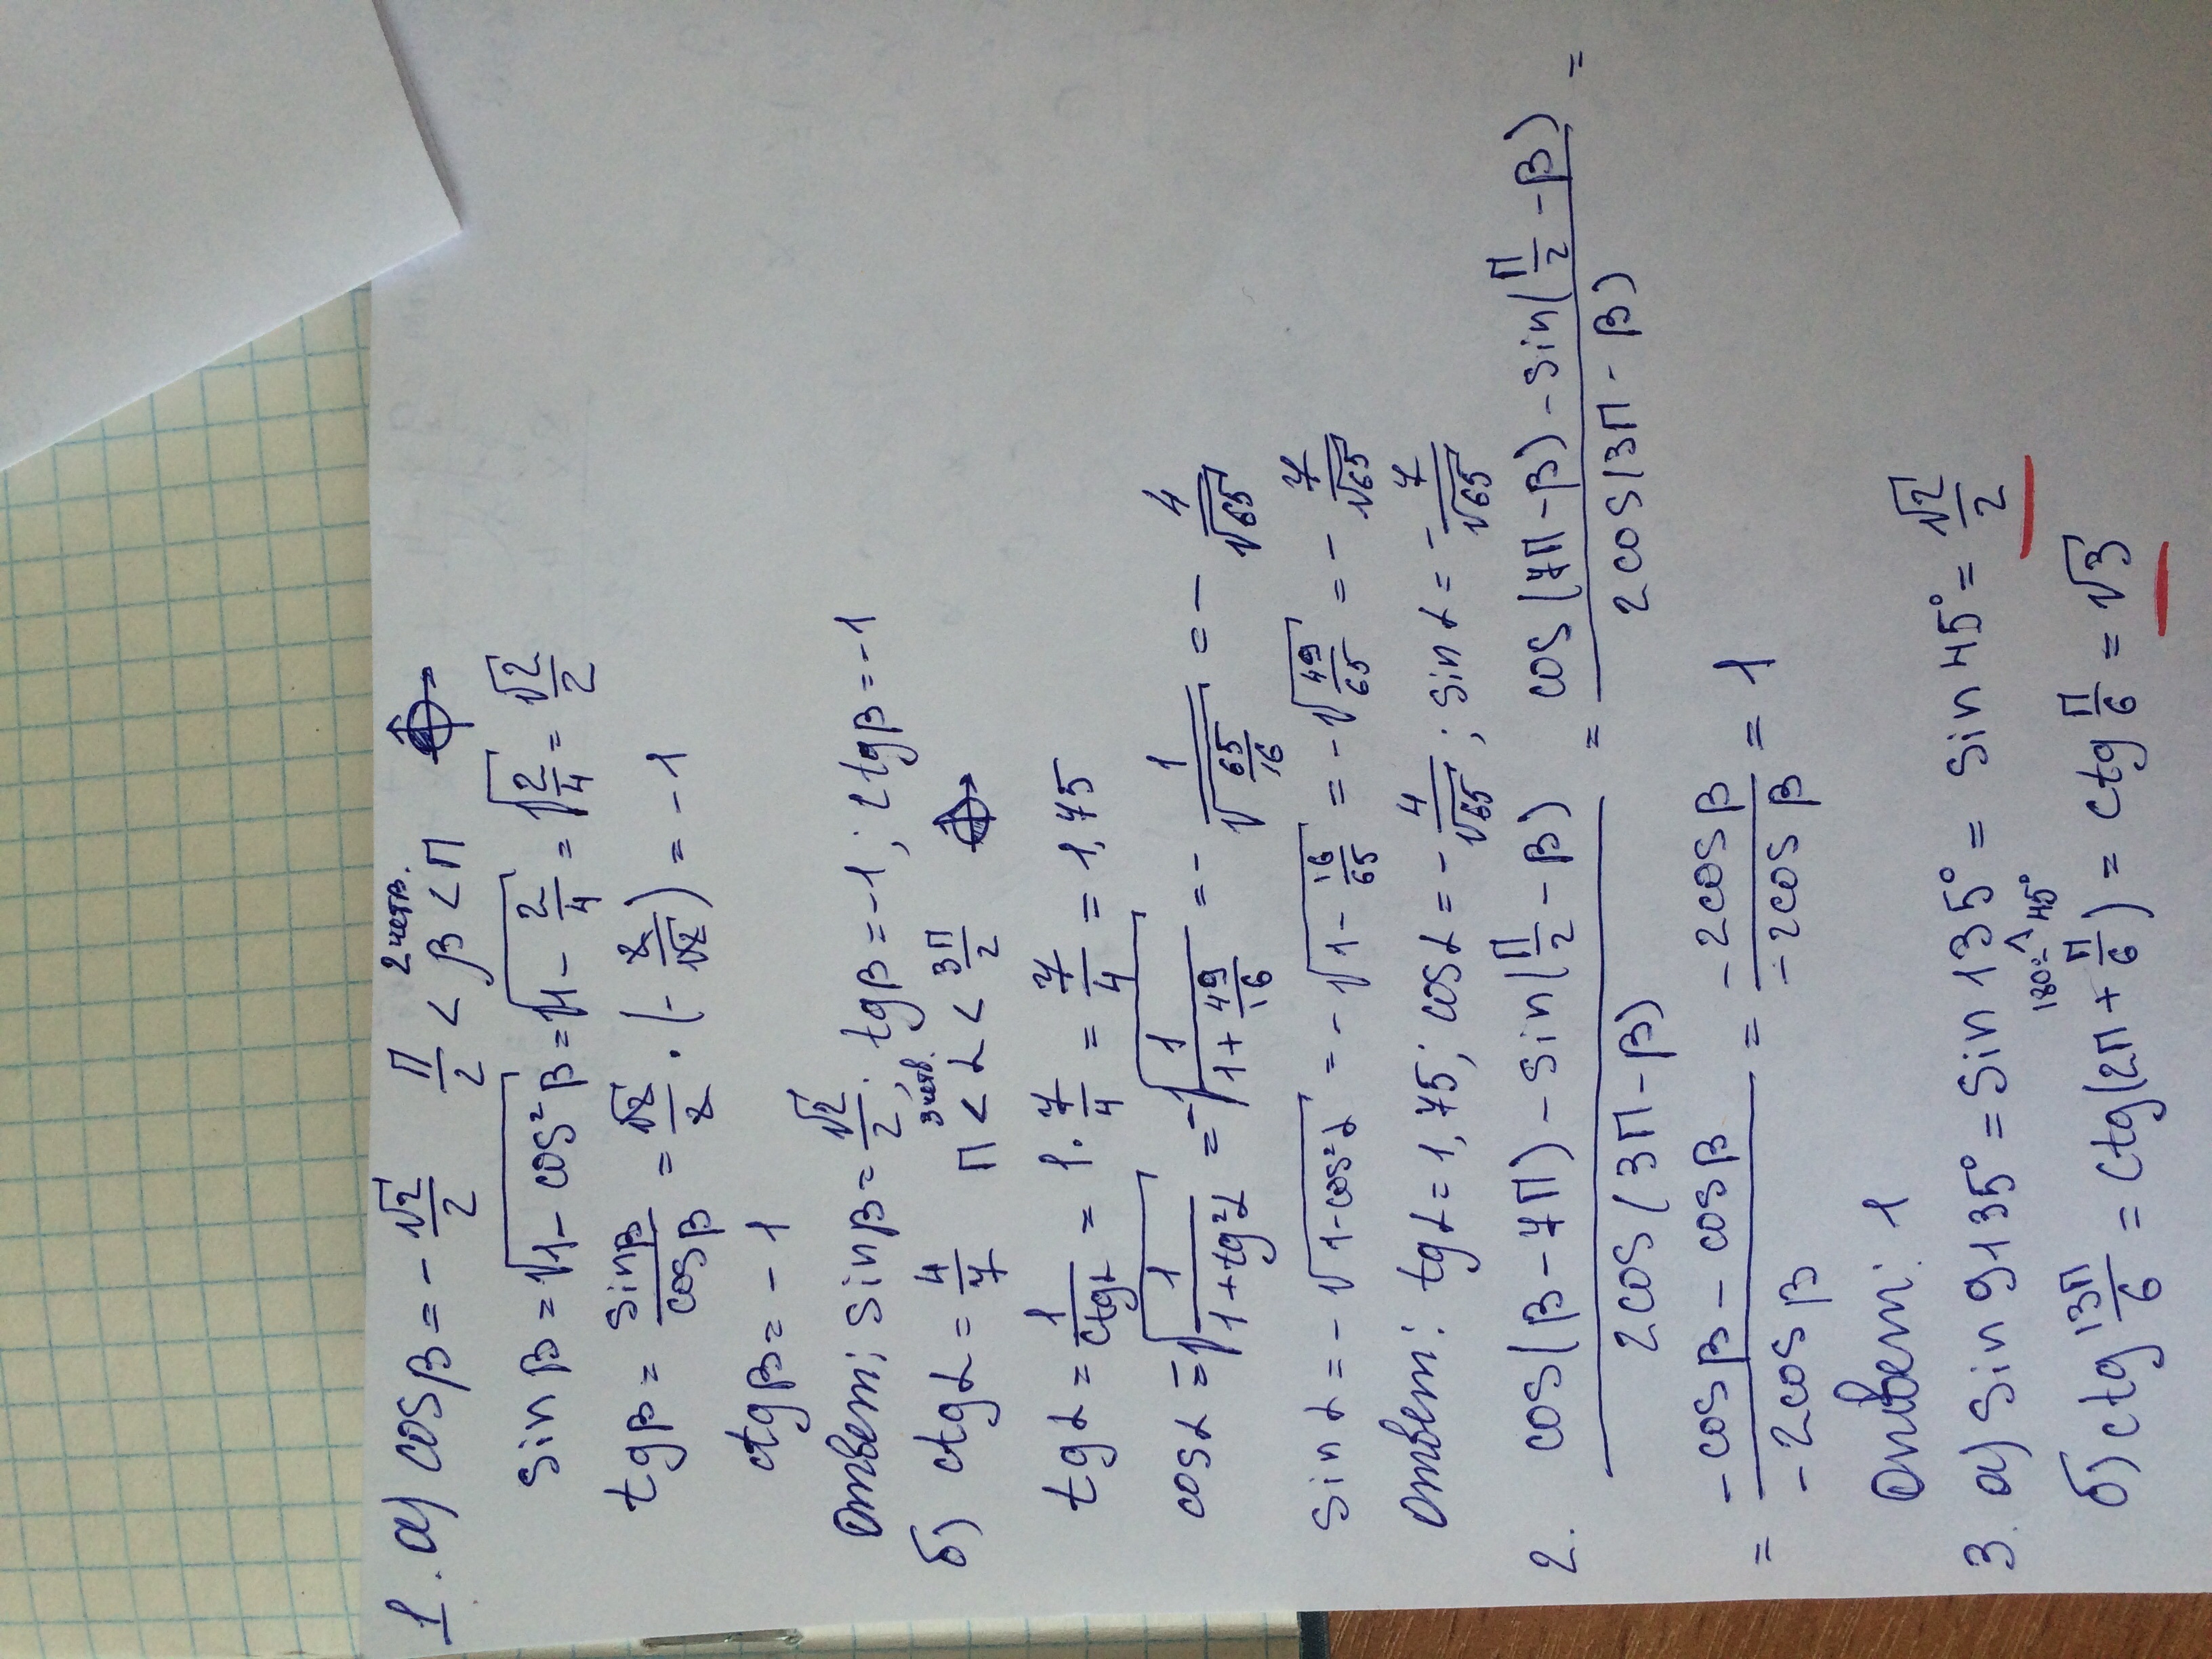 1. а) cosβ = -√2/2   π/2 < β < π   2 четв.
sinβ = √(1 - cos²β) = √(1 - 2/4) = √(2/4) = √2/2
tgβ = sinβ/cosβ = √2/2 · (-2/√2) = -1
ctgβ = -1
Ответ: sinβ = √2/2; tgβ = -1; ctgβ = -1
б) ctgα = 4/7   π < α < 3π/2   3 четв.
tgα = 1/ctgα = 1 · 7/4 = 7/4 = 1,75
cosα = -√(1/(1+tg²α)) = -√(1/(1+49/16)) = -1/√(65/16) = -4/√65
sinα = -√(1-cos²α) = -√(1-16/65) = -√(49/65) = -7/√65
Ответ: tgα = 1,75; cosα = -4/√65; sinα = -7/√65
2. (cos(β-7π) - sin(π/2-β))/(2cos(3π-β)) = (cos(7π-β) - sin(π/2-β))/(2cos(3π-β)) =
= (-cosβ - cosβ)/(-2cosβ) = (-2cosβ)/(-2cosβ) = 1
Ответ: 1
3. а) sin9135° = sin135° = sin45° = √2/2
180°- 45°
б) ctg 13π/6 = ctg(2π + π/6) = ctg π/6 = √3